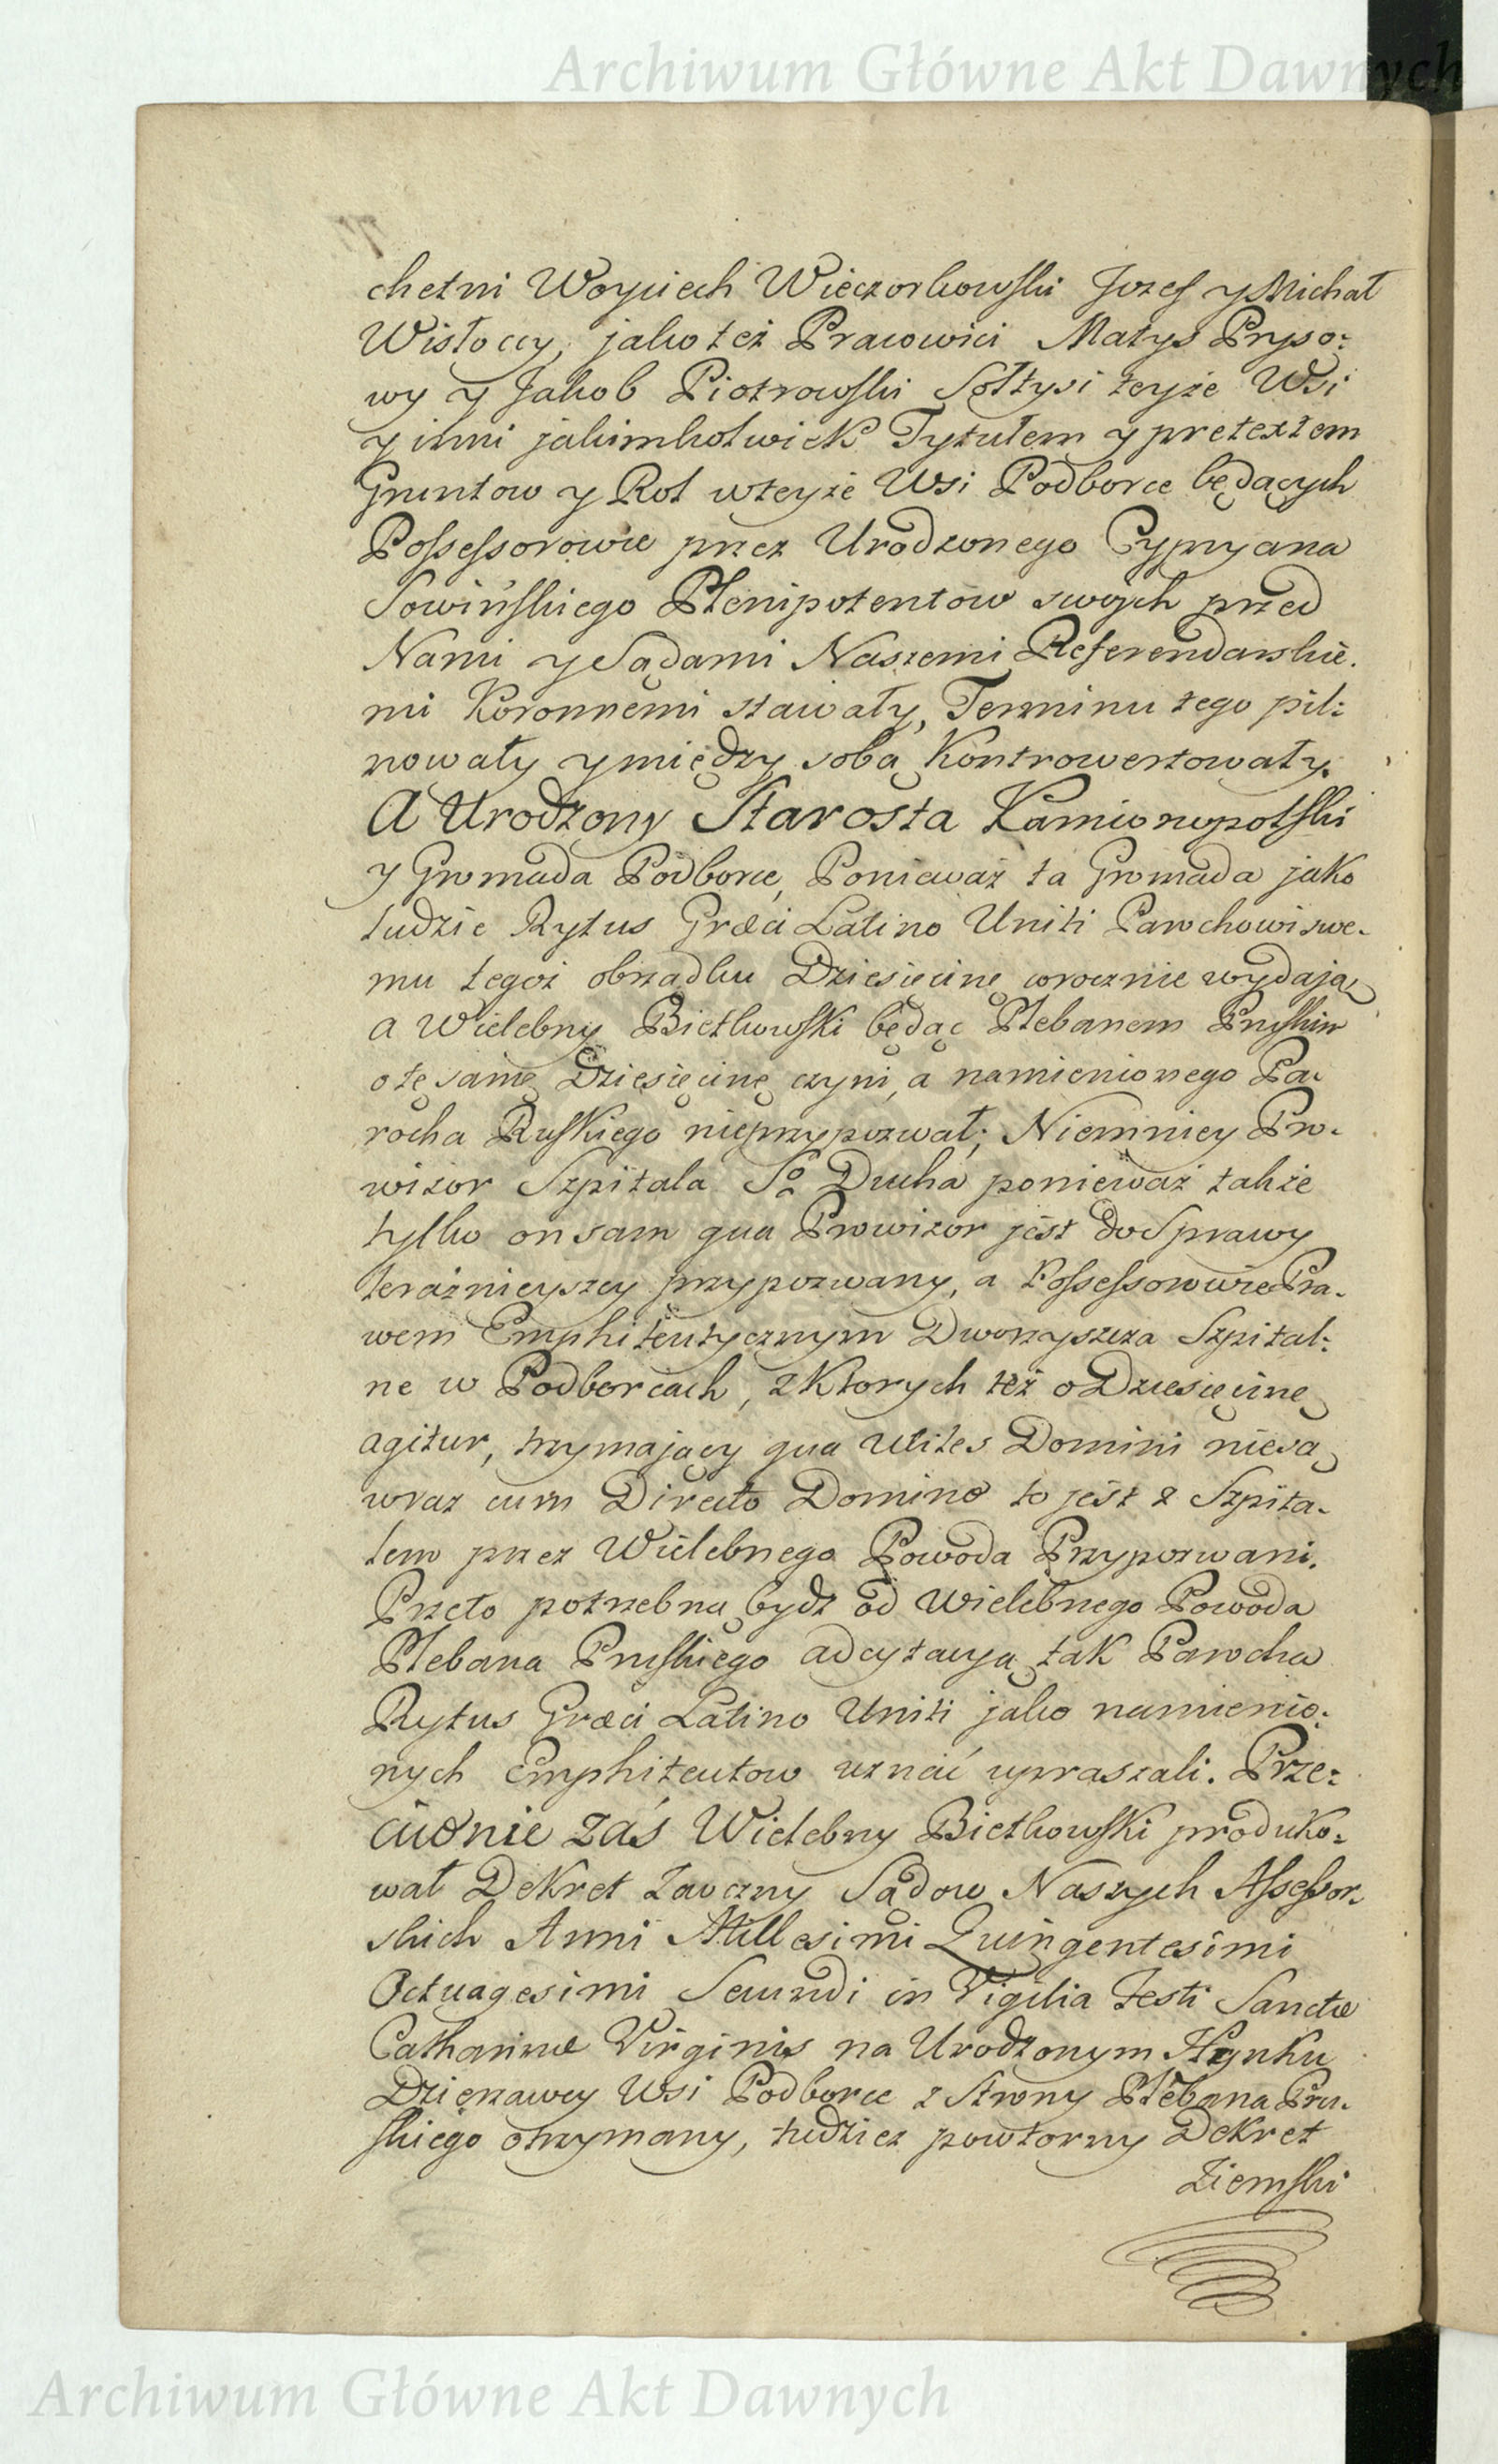 Archiwum Główne Akt Dawnych
chetni Woyciech Wieczorkowski Jozef y Michał
Wisłoccy, jako też Pracowici Matys Pryso:
wy y Jakob Piotrowski Sołtysi teyże Wsi
y inni jakimkolwiek Tytułem y pretextem
Gruntow y Rol wteyże Wsi Podborce będących
Possessorowie przez Urodzonego Cypryana
Sowińskiego Plenipotentów swoych przed
Nami y Sądami Naszemi Referendarskie.
mi Koronnemi stawały, Terminu tego pil:
nowały y między sobą Kontrowertowały.
A Urodzony Starosta Kamionopolski
y Gromada Podborce, Ponieważ ta Gromada jako
ludzie Rytus Græci Latino Uniti Parochowi swe.
mu tegoż obrządku Dziesięcinę corocznie wydają
a Wielebny Bietkowski będąc Plebanem Pruskim
o tę samę Dziesięcinę czyni, a namienionego Pa.
rocha Ruskiego nieprzypozwał; Niemniey Pro.
wizor Szpitala So Ducha ponieważ także
tylko on sam qua Prowizor jest do Sprawy
teraźnieyszey przypozwany, a Possessorowie Pra.
wem Emphiteutycznym Dworzyszcza Szpital:
ne w Podborcach, z Ktorych też o Dziesięcinę
agitur, trzymający qua Utiles Domini niesą
wraz cum Directo Domino to jest z Szpita.
lem przez Wielebnego Powoda Przypozwani.
Przeto potrzebną bydz od Wielebnego Powoda
Plebana Pruskiego adcytacyą tak Parocha
Rytus Græci Latino Uniti jako namienio:
nych Emphiteutow uznać upraszali. Prze:
ciwnie zaś Wielebny Bietkowski produko:
wał Dekret Zaoczny Sądow Naszych Assessor.
skich Anni Millesimi Quingentesimi
Octuagesimi Secundi in Vigilia Festi Sanctæ
Catharinæ Virginis na Urodzonym Hynku
Dzierzawcy Wsi Podborce z Strony Plebana Pru.
skiego otrzymany, tudziez powtorny Dekret
Ziemski
Archiwum Główne Akt Dawnych